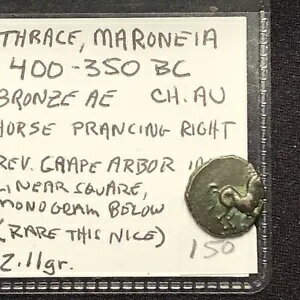 THRACE, MARONEIA
400-350 BC
BRONZE AE CH. AU
HORSE PRANCING RIGHT
REV. GRAPE ARBOR IN
LINEAR SQUARE,
MONOGRAM BELOW
(RARE THIS NICE)
2.11gr. 150